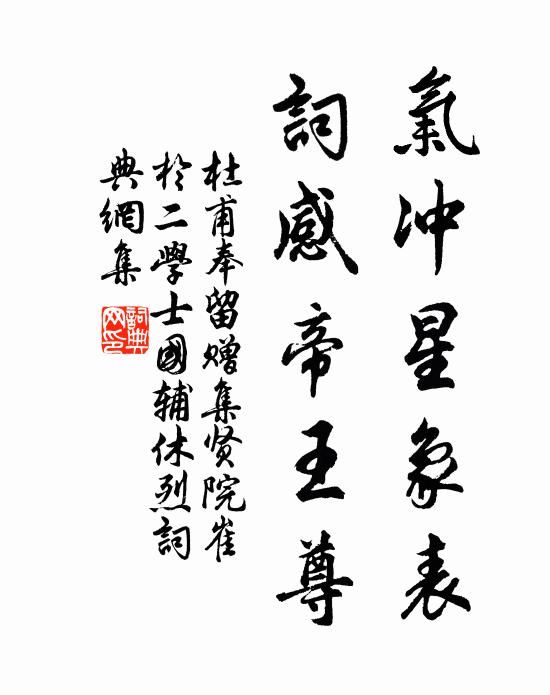 氣冲星象表
詞感帝王尊
杜甫奉留赠集贤院崔
於二學士國辅休烈詞
典網集
詞典网印